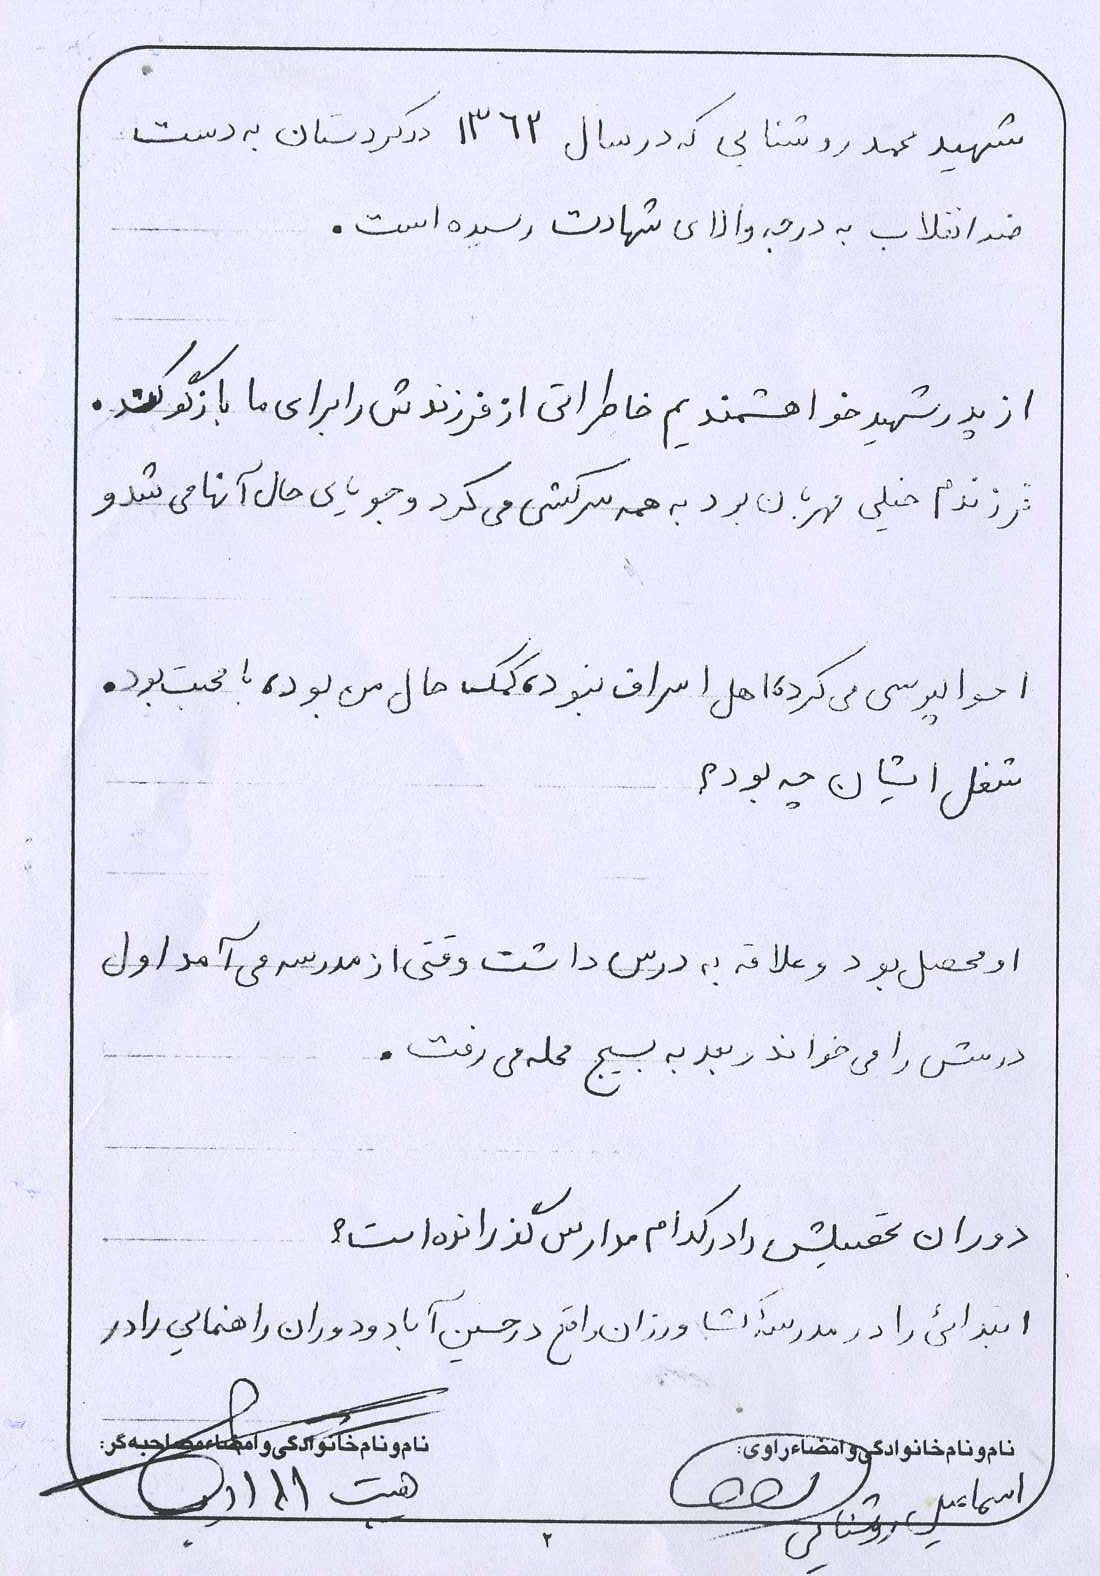 شهید محمد روشنایی که در سال ۱۳۶۲ در کردستان به دست
ضد انقلاب به درجه والای شهادت رسیده است.
از پدر شهید خواهشمندیم خاطراتی از فرزندش را برای ما بازگو کند.
فرزندم خیلی مهربان بود به همه سرکشی می کرد و جویای حال آنها می شد و
احوالپرسی می کرد، اهل اسراف نبود، کمک حال من بود، با محبت بود.
شغل ایشان چه بود؟
او محصل بود و علاقه به درس داشت وقتی از مدرسه می آمد اول
درسش را می خواند و بعد به بسیج محله می رفت.
دوران تحصیلیش را در کدام مدارس گذرانده است؟
ابتدائی را در مدرسه کشاورزان واقع در حسین آباد و دوران راهنمایی را در
نام و نام خانوادگی و امضاء راوی:
نام و نام خانوادگی و امضاء مصاحبه گر:
اسماعیل روشنایی
هیبت
۲